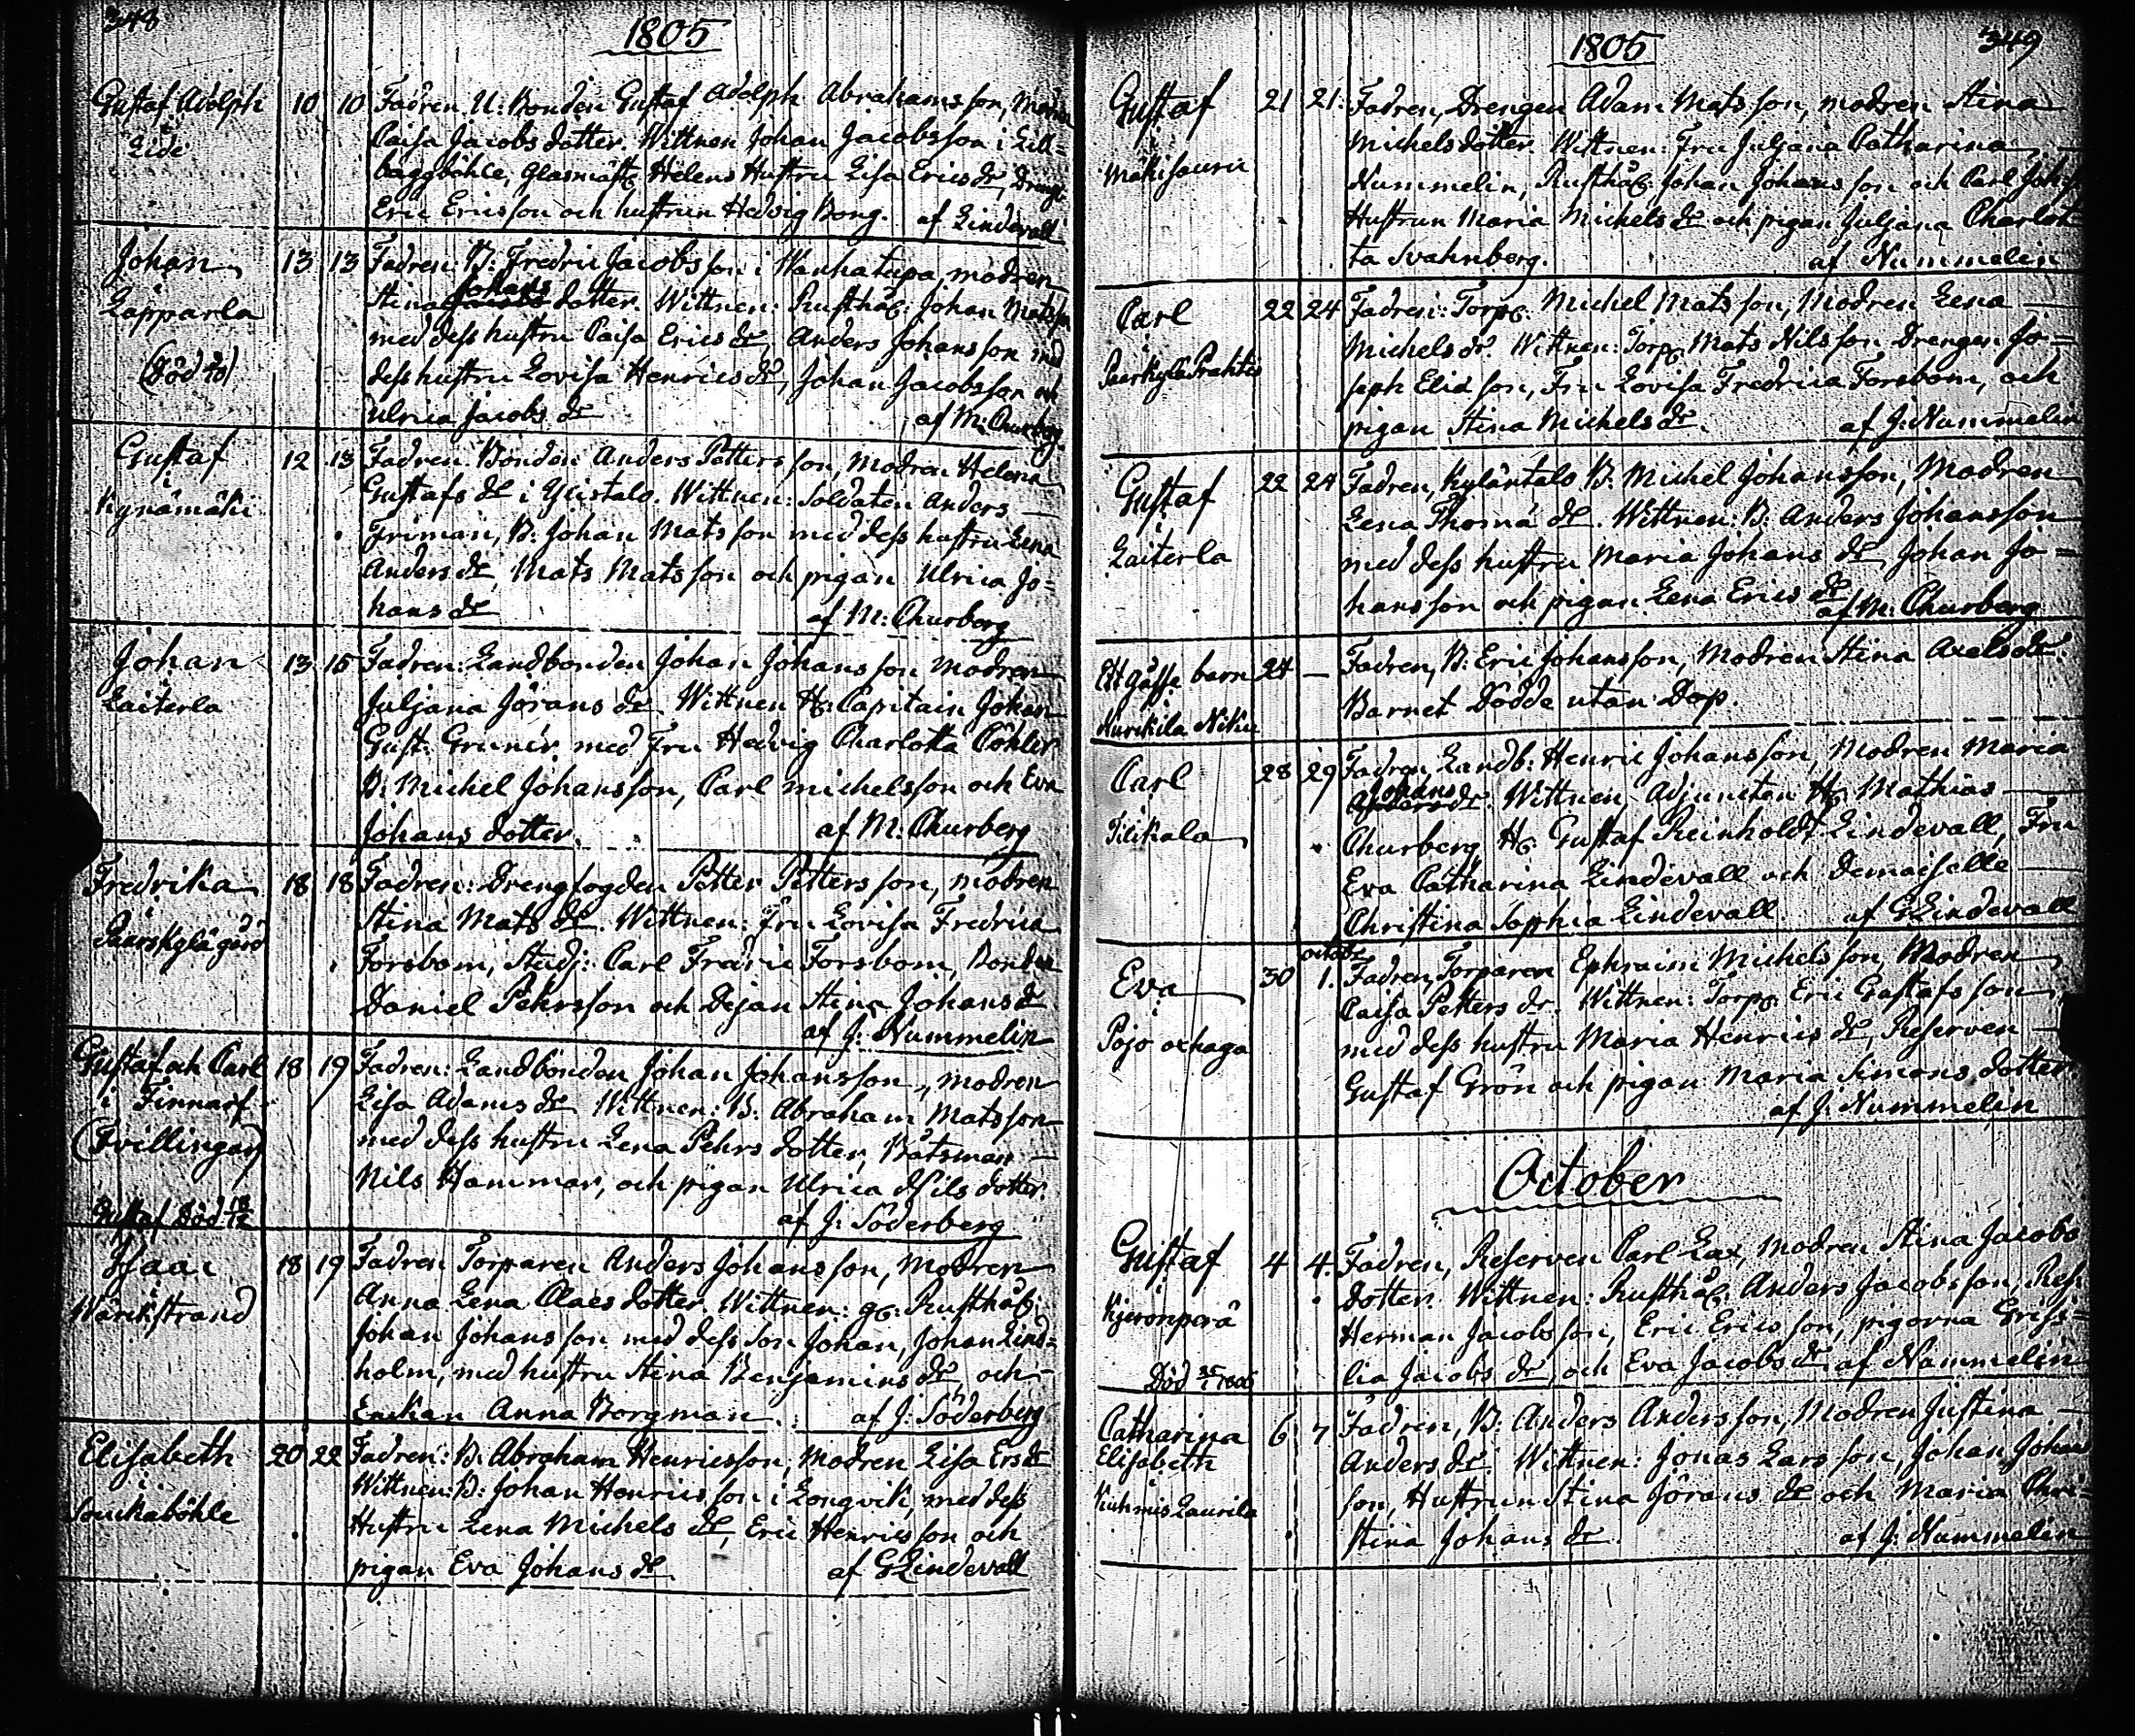 348
1805
Gustaf Adolph
i
Lide
10 10 Fadren, U: Bonden Gustaf Adolph Abrahamsson, modren
Caisa Jacobs dotter. Wittnen Johan Jacobsson i Lill=
baggböhle, Glasmäst: Helens Hustru Lisa Ericsdr, Dreng:
Eric Ericsson och hustrun Hedvig Bong. af Lindevall
Johan
i
Lapparla
(Död)
13 13 Fadren: B: Fredric Jacobsson i Wanhatupa, modren
Stina Johans dotter. Wittnen: Rusthål: Johan Matsson
med dess hustru Caisa Ericsdr, Anders Johansson med
dess hustru Lovisa Henricsdr, Johan Jacobsson och
Ulrica Jacobsdr af M: Churberg
Gustaf
i
Kynämäki
12 13 Fadren. Bonden Anders Pettersson, Modren Helena
Gustafsdr i Ylistalo. Wittnen: Soldaten Anders
Friman, B: Johan Matsson med dess hustru Lena
Andersdr, Mats Matsson och pigan Ulrica Jo=
hansdr af M: Churberg
Johan
i
Laiterla
13 15 Fadren: Landbonden Johan Johansson Modren
Juljana Jöransdr. Wittnen H: Capitain Johan
Gust: Gruner med Fru Hedvig Charlotta Cöhler
B: Michel Johansson, Carl Michelsson och Eva
Johans dotter. af M: Churberg
Fredrika
i
Paerskylä gård
18 18 Fadren: Drengfogden Petter Pettersson, modren
Stina Matsdr. Wittnen: Fru Lovisa Fredrica
Forsbom, Studj: Carl Fredric Forsbom, Bonden
Daniel Pehrsson och Dejan Stina Johansdr
af J: Nummelin
Gustaf och Carl
i Finnarf
(Tvillingar)
Gustaf Död
18 19 Fadren: Landbonden Johan Johansson, modren
Lisa Adamsdr Wittnen: B: Abraham Matsson
med dess hustru Lena Pehrs dotter, Båtsman
Nils Hammar, och pigan Ulrica Nils dotter.
af J: Söderberg
Isaac
i
Warikstrand
18 19 Fadren Torparen Anders Johansson, Modren
Anna Lena Claes dotter. Wittnen: g: Rusthål:
Johan Johansson med dess son Johan, Johan Lind=
holm, med hustru Stina Benjaminsdr, och
Enckan Anna Borgman. af J: Söderberg
Elisabeth
i
Souckaböhle
20 22 Fadren: B: Abraham Henricsson, Modren Lisa Ersdr
Wittnen: B: Johan Henricsson i Longvik, med dess
Hustru Lena Michelsdr, Eric Henricsson och
pigan Eva Johansdr. af GLindevall
1805
349
Gustaf
i
Mäkisouru
21 21. Fadren, Drengen Adam Matsson, modren Stina
Michelsdotter. Wittnen: Fru Juljana Catharina
Nummelin, Rusthål: Johan Johansson och Carl Johs:
Hustrun Maria Michelsdr och pigan Juljana Charlot
ta Svahnberg. af Nummelin
Carl
i
Paerkylä Prahtis
22 24 Fadren: Torp: Michel Matsson, Modren Lena
Michelsdr. Wittnen: Torp: Mats Nilsson Drengen Jo=
seph Eliasson, Fru Lovisa Fredrica Forsbom, och
pigan Stina Michelsdr. af J: Nummelin
Gustaf
i
Laiterla
22 24 Fadren, Kyläntalo B: Michel Johansson, Modren
Lena Thomædr. Wittnen: B: Anders Johansson
med dess hustru Maria Johansdr, Johan Jo=
hansson och pigan Lena Ericsdr
af M: Churberg
Ett gåsse barn
i
Nurikila Niku
24 — Fadren, B: Eric Johansson, Modren Stina Axelsdr.
Barnet Dödde utan Dop.
Carl
i
Pilikala
28 29 Fadren, Landb: Henric Johansson, Modren Maria
Johansdr. Wittnen, Adjuncten H: Mathias
Churberg H: Gustaf Reinholdt Lindevall, Fru
Eva Catharina Lindevall och Demoiselle
Christina Sophia Lindevall af GLindevall
Eva
i
Pojo axhaga
30 octobr 1. Fadren, Torparen Ephraim Michelsson, Modren
Caisa Pettersdr. Wittnen: Torp: Eric Gustafsson
med dess hustru Maria Henricsdr, Reserven
Gustaf Grön och pigan Maria Simons dotter
af J: Nummelin
October
Gustaf
i
Kjeronperä
Död
4 4. Fadren, Reserven Carl Lax, Modren Stina Jacobs
dotter. Wittnen: Rusthål: Anders Jacobsson, Res:
Herman Jacobsson, Eric Ericsson, pigorna Griss=
lia Jacobsdr, och Eva Jacobsdr. af Nummelin
Catharina
Elisabeth
i
Kuhmis Laurila
6 7 Fadren, B: Anders Andersson, Modren Justina
Andersdr. Wittnen: Jonas Larsson, Johan Johans
son, Hustrun Stina Jöransdr och Maria Chri=
stina Johansdr. af J: Nummelin